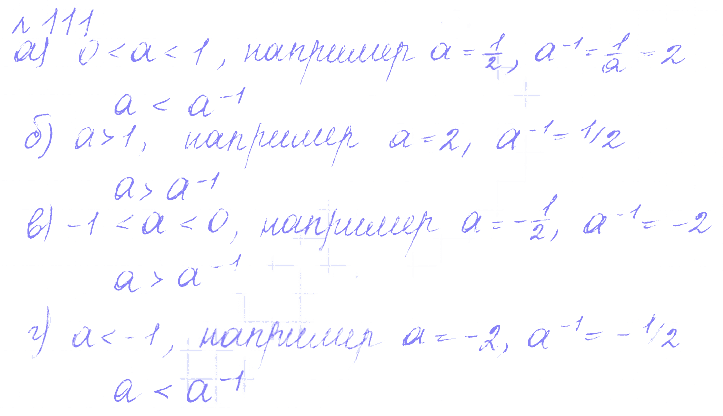 №111
а) 0 < a < 1, например a = 1/2, a⁻¹ = 1/a = 2
a < a⁻¹
б) a > 1, например a = 2, a⁻¹ = 1/2
a > a⁻¹
в) -1 < a < 0, например a = -1/2, a⁻¹ = -2
a > a⁻¹
г) a < -1, например a = -2, a⁻¹ = -1/2
a < a⁻¹